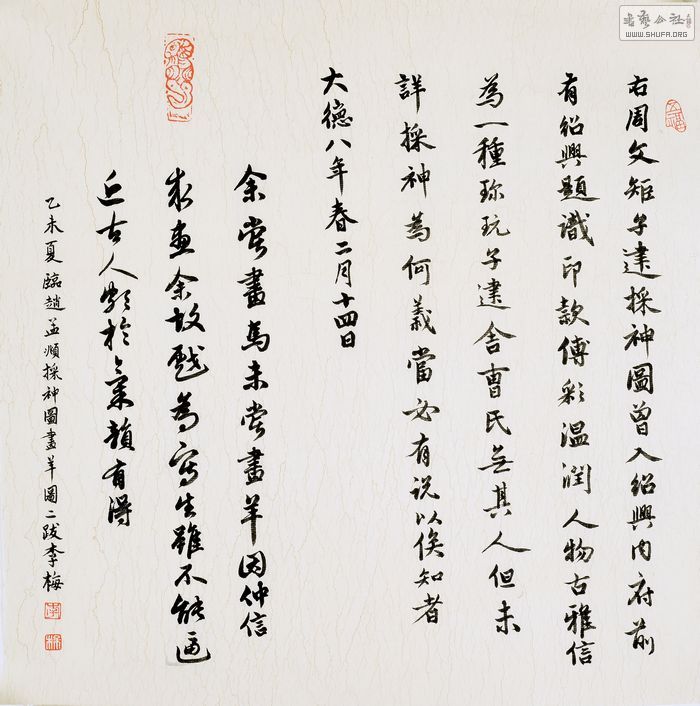 右周文矩子建採神圖曾入紹興内府前
有紹興題識印款傅彩温潤人物古雅信
為一種珎玩子建舍曹氏無其人但未
詳採神為何義當必有说以俟知者
大德八年春二月十四日
余嘗畫馬未嘗畫羊因仲信
求畫余故戲為寫生雖不能逼
近古人頗於氣韻有得
乙未夏臨趙孟頫採神圖畫羊圖二跋李梅
書藝公社
WWW.SHUFA.ORG